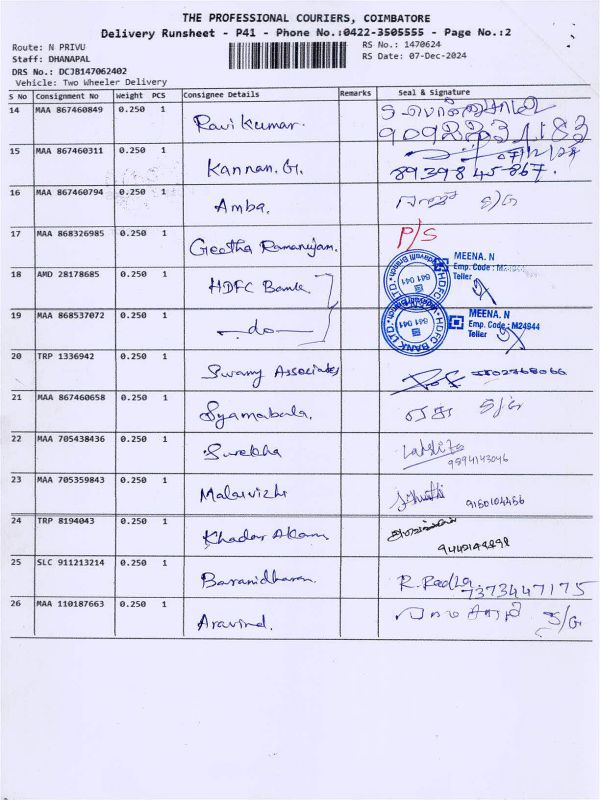 THE PROFESSIONAL COURIERS, COIMBATORE
Delivery Runsheet - P41 - Phone No.:0422-3505555 - Page No.:2
Route: N PRIVU
RS No.: 1470624
Staff: DHANAPAL
RS Date: 07-Dec-2024
DRS No.: DCJB147062402
Vehicle: Two Wheeler Delivery
S No Consignment No Weight PCS Consignee Details Remarks Seal & Signature
14 MAA 867460849 0.250 1 Ravi Kumar.
15 MAA 867460311 0.250 1 Kannan. G. 8939845867.
16 MAA 867460794 0.250 1 Amba. S/G
17 MAA 868326985 0.250 1 Geetha Ramanujam. P/S
18 AMD 28178685 0.250 1 HDFC Bank
MEENA. N
Emp. Code : M24944
Teller
19 MAA 868537072 0.250 1 -do-
HDFC BANK LTD
641 041
MEENA. N
Emp. Code : M24944
Teller
20 TRP 1336942 0.250 1 Swamy Associates
21 MAA 867460658 0.250 1 Syamabala. S/G
22 MAA 705438436 0.250 1 Surekha
23 MAA 705359843 0.250 1 Malarvizhi 9150104456
24 TRP 8194043 0.250 1 Khadar Akam
25 SLC 911213214 0.250 1 Baranidharan. R. Radha
7373447175
26 MAA 110187663 0.250 1 Aravind. S/G